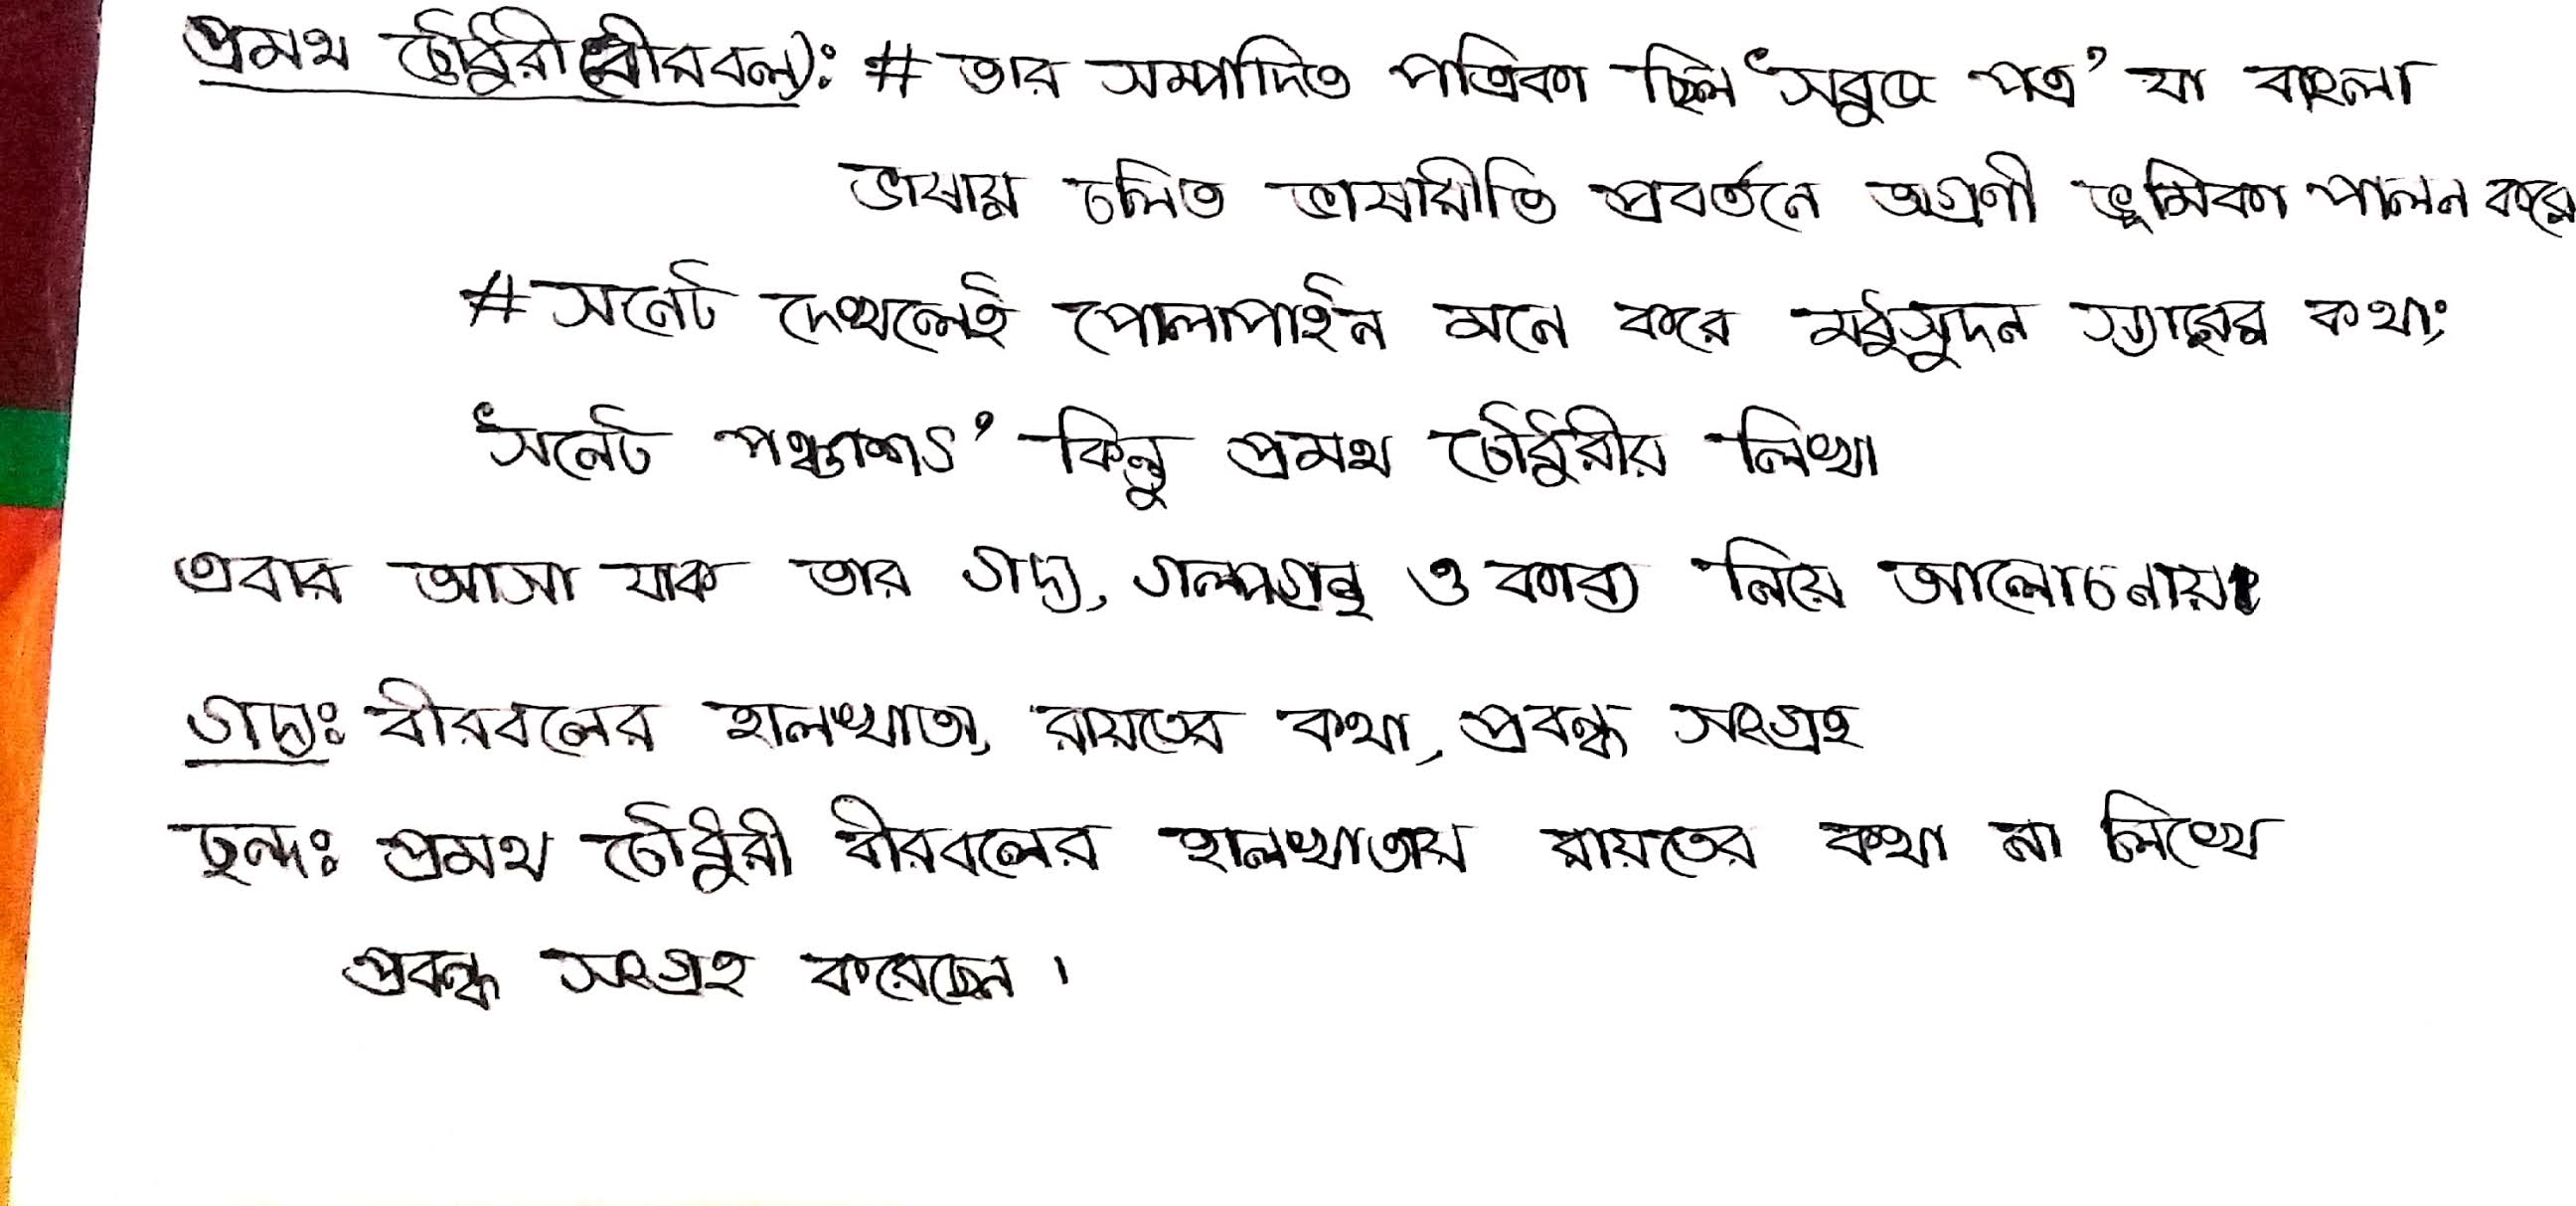 প্রমথ চৌধুরী(বীরবল): # তার সম্পাদিত পত্রিকা ছিল ‘সবুজ পত্র’ যা বাংলা
ভাষায় চলিত ভাষারীতি প্রবর্তনে অগ্রণী ভূমিকা পালন করে
# সনেট দেখলেই পোলাপাইন মনে করে মধুসুদন স্যারের কথা;
‘সনেট পঞ্চাশৎ’ কিন্তু প্রমথ চৌধুরীর লিখা
এবার আসা যাক তার গদ্য, গল্পগ্রন্থ ও কাব্য নিয়ে আলোচনায়।
গদ্যঃ বীরবলের হালখাতা, রায়তের কথা, প্রবন্ধ সংগ্রহ
ছন্দঃ প্রমথ চৌধুরী বীরবলের হালখাতায় রায়তের কথা না লিখে
প্রবন্ধ সংগ্রহ করেছেন।